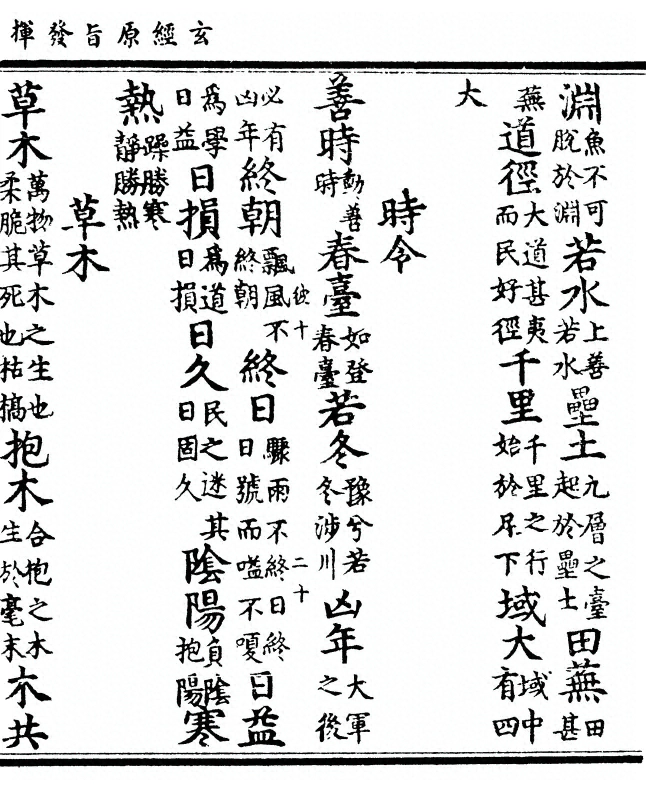 玄經原旨發揮
淵魚不可脫於淵若水上善若水壘土九層之臺起於壘土田蕪田甚
蕪道徑大道甚夷而民好徑千里千里之行始於足下域大域中有四
大
時令
善時動善時春臺如登春臺若冬豫兮若冬涉川凶年大軍之後
必有凶年終朝飄風不終朝彼十終日驟雨不終日終日號而嗌不嗄二十日益
為學日益日損為道日損日久民之迷其日固久陰陽負陰抱陽寒
熱躁勝寒靜勝熱
草木
草木萬物草木之生也柔脆其死也枯槁抱木合抱之木生於毫末木共